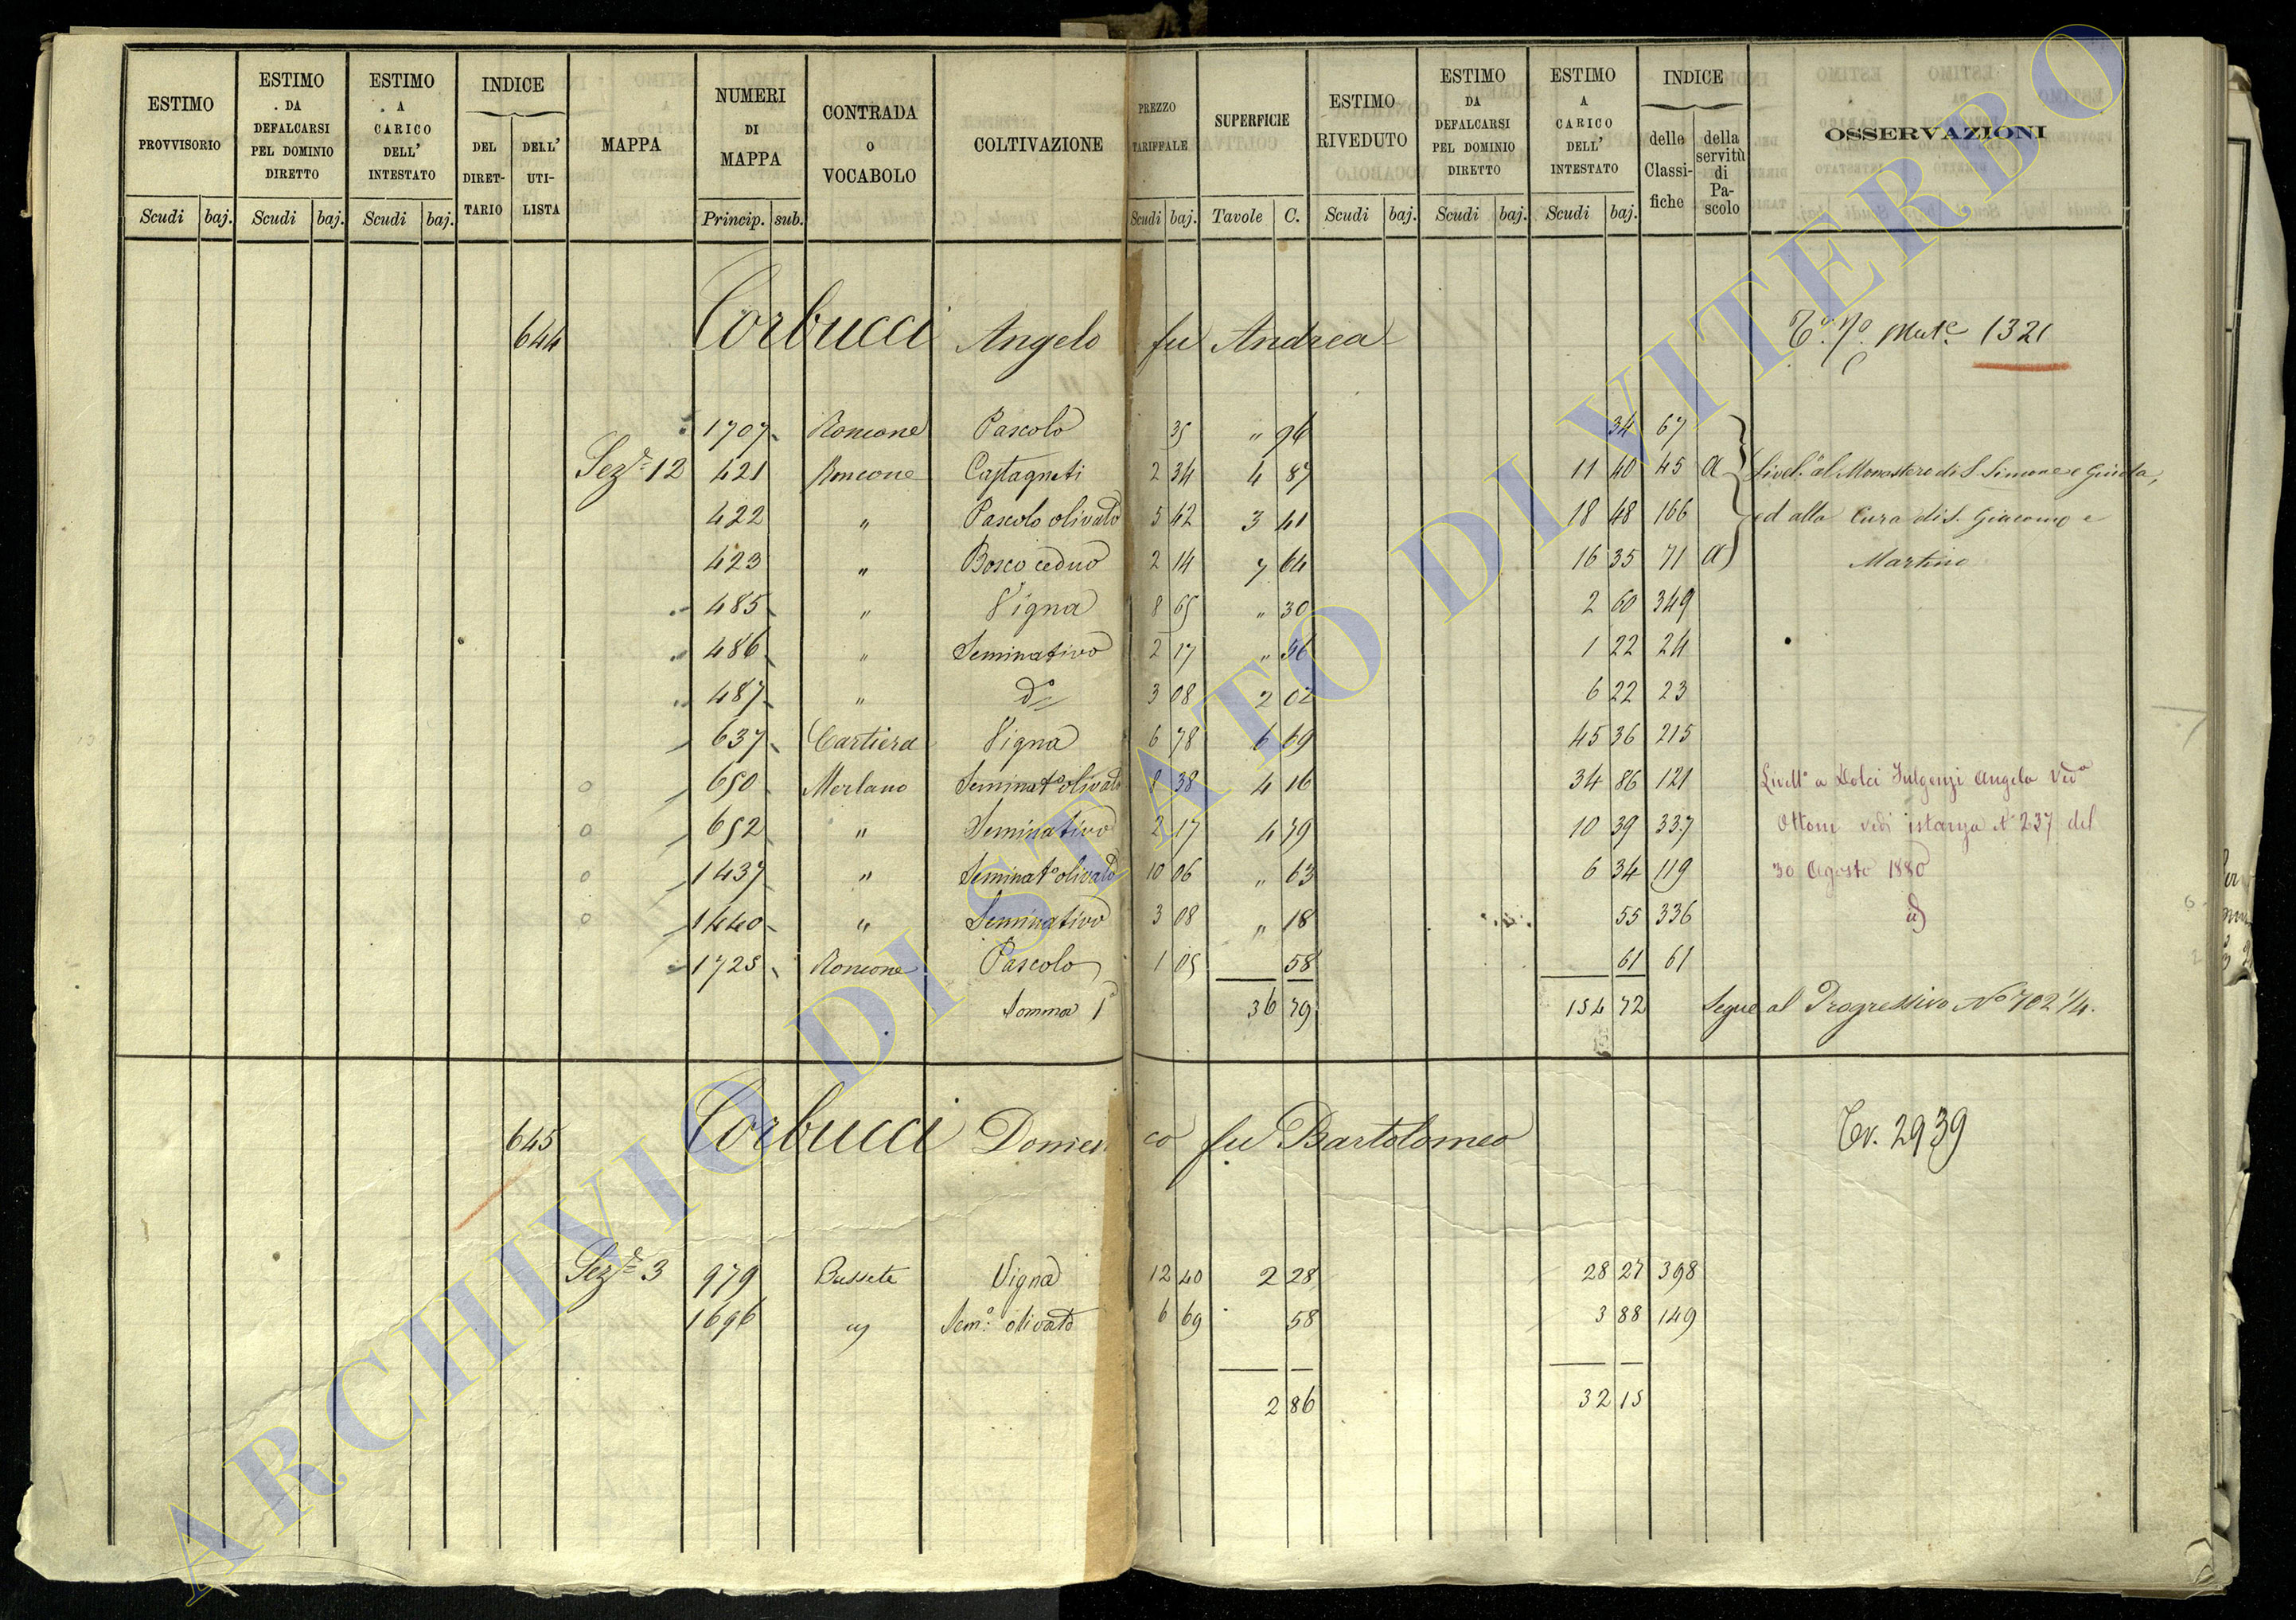 ESTIMO PROVVISORIO
ESTIMO DA DEFALCARSI PEL DOMINIO DIRETTO
ESTIMO A CARICO DELL' INTESTATO
INDICE
DEL DIRET-TARIO
DELL' UTI-LISTA
MAPPA
NUMERI DI MAPPA
CONTRADA O VOCABOLO
COLTIVAZIONE
PREZZO TARIFFALE
SUPERFICIE
ESTIMO RIVEDUTO
ESTIMO DA DEFALCARSI PEL DOMINIO DIRETTO
ESTIMO A CARICO DELL' INTESTATO
INDICE
delle Classi-fiche
della servitù di Pa-scolo
OSSERVAZIONI
Scudi baj. Scudi baj. Scudi baj. Princip. sub. Scudi baj. Tavole C. Scudi baj. Scudi baj. Scudi baj.
644 Corbucci Angelo fu Andrea 1321
1707 Roncone Pascolo 35 " 96 34 67
Sez.e 12 421 Roncone Castagneti 2 34 4 87 11 40 45 a Livel.o al Monastero di S. Simone e Giuda,
422 " Pascolo olivato 5 42 3 41 18 48 166 ed alla Cura di S. Giacomo e
423 " Bosco ceduo 2 14 7 64 16 35 71 a Martino
485 " Vigna 8 65 " 30 2 60 349
486 " Seminativo 2 17 " 56 1 22 24
487 " do 3 08 2 02 6 22 23
637 Cartiera Vigna 6 78 6 69 45 36 215
650 Merlano Seminat.o olivato 8 38 4 16 34 86 121 Livell.o a Dolci Fulgenzi Angela Ved.a
652 " Seminativo 2 17 4 79 10 39 337 Ottoni vedi istanza No 237 del
1437 " Seminat.o olivato 10 06 " 63 6 34 119 30 Agosto 1880
1440 " Seminativo 3 08 " 18 55 336
1725 Roncone Pascolo 1 05 58 61 61
Somma 36 79 154 72 Segue al Progressivo No 702 1/4.
645 Corbucci Domenico fu Bartolomeo Tr. 2939
Sez.e 3 979 Bussete Vigna 12 40 2 28 28 27 398
1696 " Sem.o olivato 6 69 58 3 88 149
2 86 32 15
ARCHIVIO DI STATO DI VITERBO